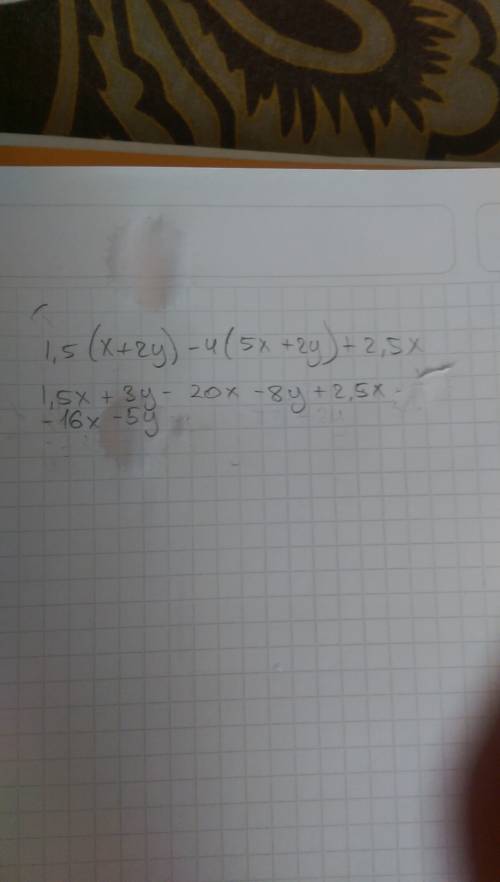 1,5(x+2y)-4(5x+2y)+2,5x
1,5x+3y-20x-8y+2,5x
-16x-5y